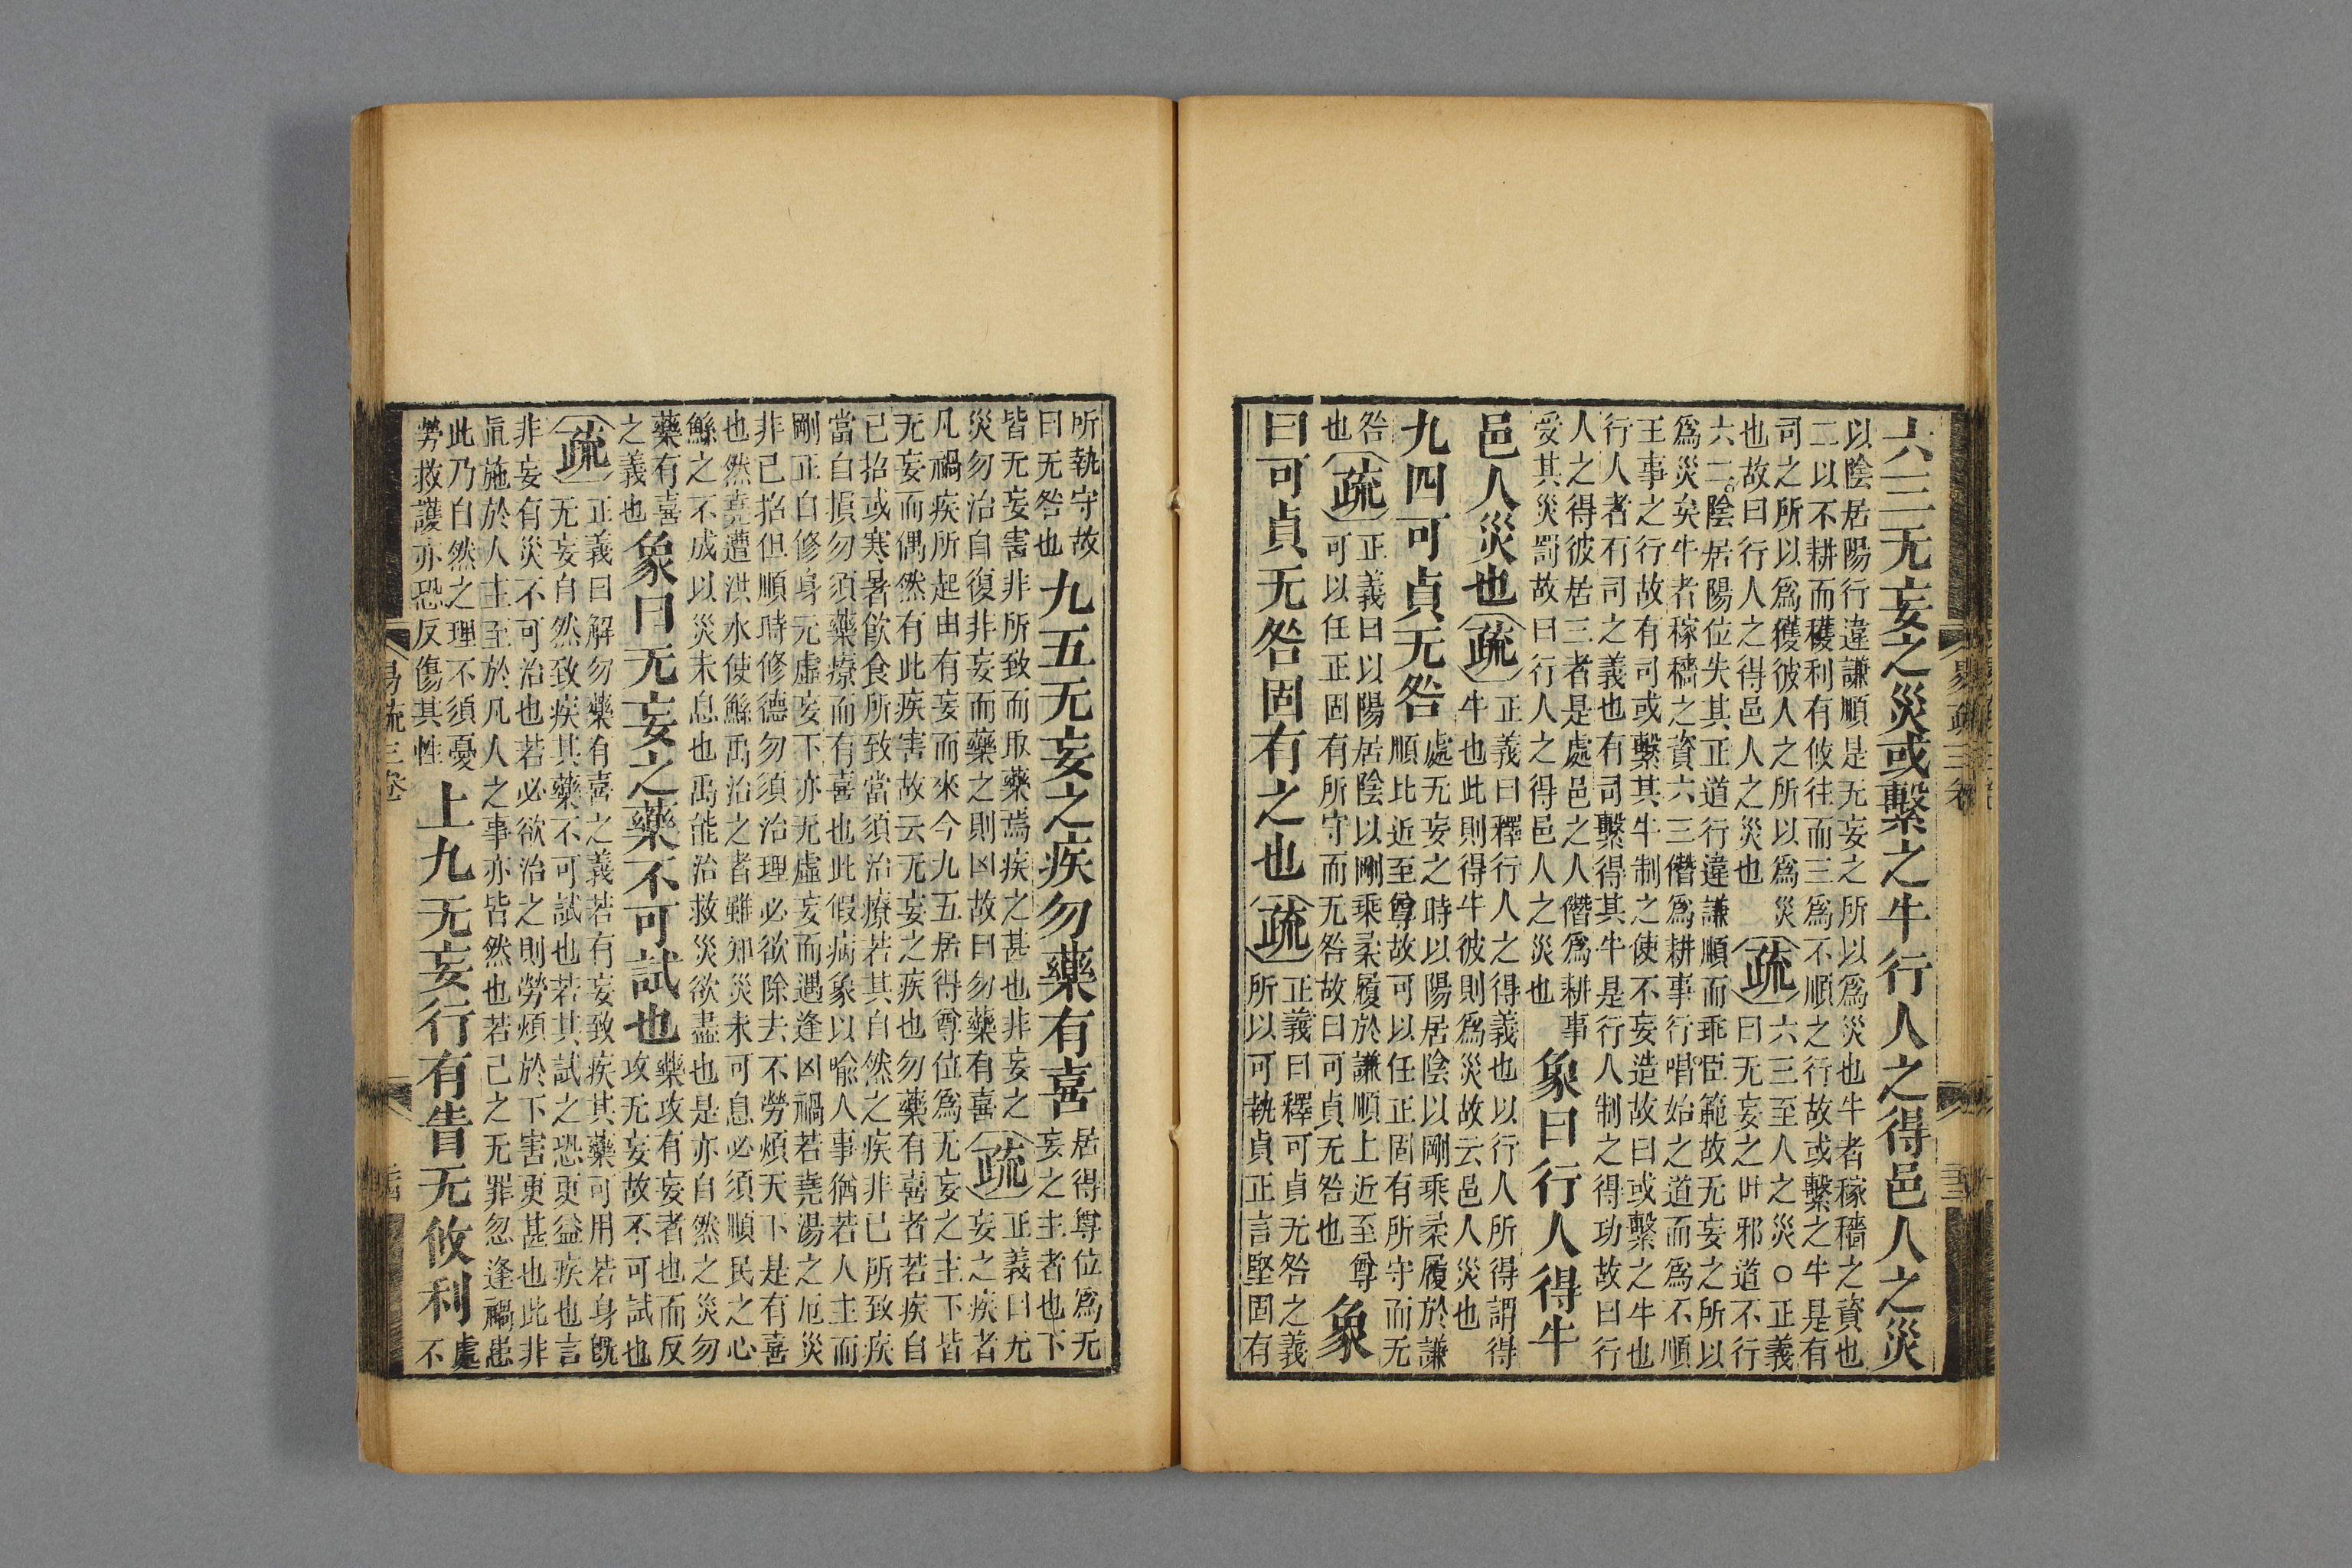 易疏三卷
六三无妄之災或繫之牛行人之得邑人之災
以陰居陽行違謙順是无妄之所以為災也牛者稼穡之資也
二以不耕而穫利有攸往而三為不順之行故或繫之牛是有
司之所以為獲彼人之所以為災
也故曰行人之得邑人之災也
疏
六三至人之災○正義
曰无妄之世邪道不行
六二陰居陽位失其正道行違謙順而乖臣範故无妄之所以
為災矣牛者稼穡之資六三僭為耕事行唱始之道而為不順
王事之行故有司或繫其牛制之使不妄造故曰或繫之牛也
行人者有司之義也有司繫得其牛是行人制之得功故曰行
人之得彼居三者是處邑之人僭為耕事
受其災罰故曰行人之得邑人之災也
象曰行人得牛
邑人災也
疏
正義曰釋行人之得義也以行人所得謂得
牛也此則得牛彼則為災故云邑人災也
九四可貞无咎
處无妄之時以陽居陰以剛乘柔履於謙
順比近至尊故可以任正固有所守而无
咎
也
疏
正義曰以陽居陰以剛乘柔履於謙順上近至尊
可以任正固有所守而无咎故曰可貞无咎也
象
曰可貞无咎固有之也
疏
正義曰釋可貞无咎之義
所以可執貞正言堅固有
所執守故
曰无咎也
九五无妄之疾勿藥有喜
居得尊位為无
妄之主者也下
皆无妄害非所致而取藥焉疾之甚也非妄之
災勿治自復非妄而藥之則凶故曰勿藥有喜
疏
正義曰无
妄之疾者
凡禍疾所起由有妄而來今九五居得尊位為无妄之主下皆
无妄而偶然有此疾害故云无妄之疾也勿藥有喜者若疾自
已招或寒暑飲食所致當須治療若其自然之疾非已所致疾
當自損勿須藥療而有喜也此假病象以喻人事猶若人主而
剛正自修身无虛妄下亦无虛妄而遇逢凶禍若堯湯之厄災
非己招但順時修德勿須治理必欲除去不勞煩天下是有喜
也然堯遭洪水使鯀禹治之者雖知災未可息必須順民之心
鯀之不成以災未息也禹能治救災欲盡也是亦自然之災勿
藥有喜
之義也
象曰无妄之藥不可試也
藥攻有妄者也而反
攻无妄故不可試也
疏
正義曰解勿藥有喜之義若有妄致疾其藥可用若身既
无妄自然致疾其藥不可試也若其試之恐更益疾也言
非妄有災不可治也若必欲治之則勞煩於下害更甚也此非
直施於人主至於凡人之事亦皆然也若己之无罪忽逢禍患
此乃自然之理不須憂
勞救護亦恐反傷其性
上九无妄行有眚无攸利
處
不
易疏三卷